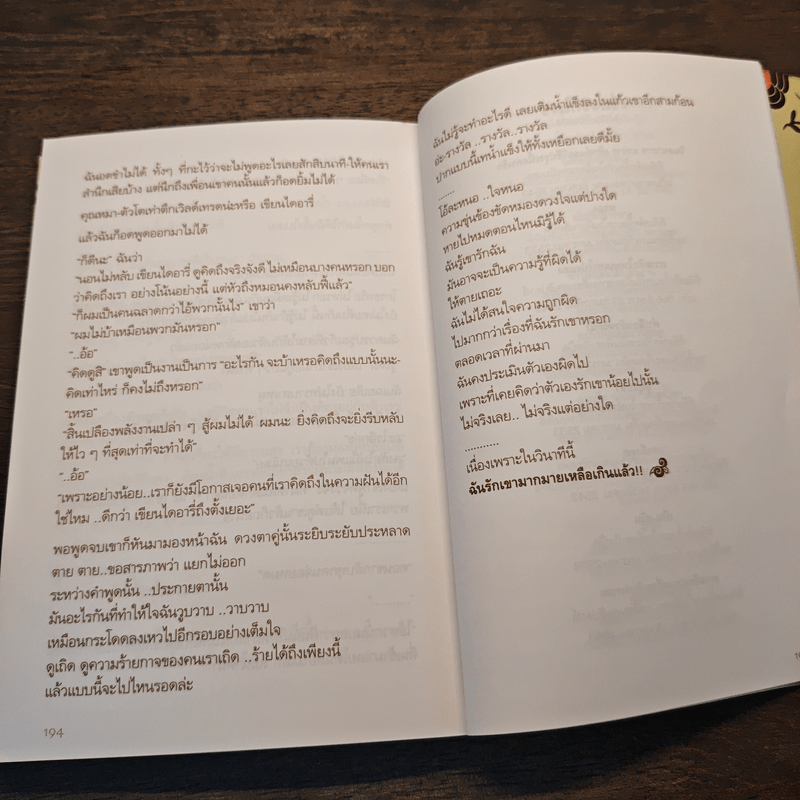 ฉันอดขำไม่ได้ ทั้งๆ ที่กะไว้ว่าจะไม่พูดอะไรเลยสักสิบนาที-ให้คนเรา
สำนึกเสียบ้าง แต่นึกถึงเพื่อนเขาคนนั้นแล้วก็อดยิ้มไม่ได้
คุณหมา-ตัวโตเท่าตึกเวิลด์เทรดน่ะหรือ เขียนไดอารี่
แล้วฉันก็อดพูดออกมาไม่ได้
“ก็ดีนะ” ฉันว่า
“นอนไม่หลับ เขียนไดอารี่ ดูคิดถึงจริงจังดี ไม่เหมือนบางคนหรอก บอก
ว่าคิดถึงเรา อย่างโน้นอย่างนี้ แต่หัวถึงหมอนคงหลับฟี้แล้ว”
“ก็ผมเป็นคนฉลาดกว่าไอ้พวกนั้นไง” เขาว่า
“ผมไม่บ้าเหมือนพวกมันหรอก”
“..อ้อ”
“คิดดูสิ” เขาพูดเป็นงานเป็นการ “อะไรกัน จะบ้าเหรอคิดถึงแบบนั้นนะ-
คิดเท่าไหร่ ก็คงไม่ถึงหรอก”
“เหรอ”
“สิ้นเปลืองพลังงานเปล่า ๆ สู้ผมไม่ได้ ผมนะ ยิ่งคิดถึงจะยิ่งรีบหลับ
ให้ไว ๆ ที่สุดเท่าที่จะทำได้”
“..อ้อ”
“เพราะอย่างน้อย..เราก็ยังมีโอกาสเจอคนที่เราคิดถึงในความฝันได้อีก
ใช่ไหม ..ดีกว่า เขียนไดอารี่ถึงตั้งเยอะ”
พอพูดจบเขาก็หันมามองหน้าฉัน ดวงตาคู่นั้นระยิบระยับประหลาด
ตาย ตาย..ขอสารภาพว่า แยกไม่ออก
ระหว่างคำพูดนั้น ..ประกายตานั้น
มันอะไรกันที่ทำให้ใจฉันวูบวาบ ..วาบวาบ
เหมือนกระโดดลงเหวไปอีกรอบอย่างเต็มใจ
ดูเถิด ดูความร้ายกาจของคนเราเถิด ..ร้ายได้ถึงเพียงนี้
แล้วแบบนี้จะไปไหนรอดล่ะ
194
ฉันไม่รู้จะทำอะไรดี เลยเติมน้ำแข็งลงในแก้วเขาอีกสามก้อน
อ่ะ-รางวัล ..รางวัล..รางวัล
ปากแบบนี้เทน้ำแข็งให้ทั้งเหยือกเลยดีมั้ย
........
โอ้ละหนอ ..ใจหนอ
ความขุ่นข้องขัดหมองดวงใจแต่ปางใด
หายไปหมดตอนไหนมิรู้ได้
ฉันรู้เขารักฉัน
มันอาจจะเป็นความรู้ที่ผิดได้
ให้ตายเถอะ
ฉันไม่ได้สนใจความถูกผิด
ไปมากกว่าเรื่องที่ฉันรักเขาหรอก
ตลอดเวลาที่ผ่านมา
ฉันคงประเมินตัวเองผิดไป
เพราะที่เคยคิดว่าตัวเองรักเขาน้อยไปนั้น
ไม่จริงเลย.. ไม่จริงแต่อย่างใด
..........
เนื่องเพราะในวินาทีนี้
ฉันรักเขามากมายเหลือเกินแล้ว!!